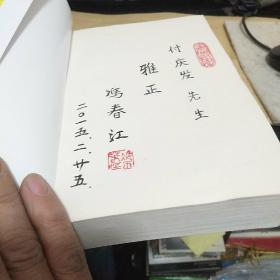 付庆发 先生
雅正
冯春江
二〇一五.二.廿五.